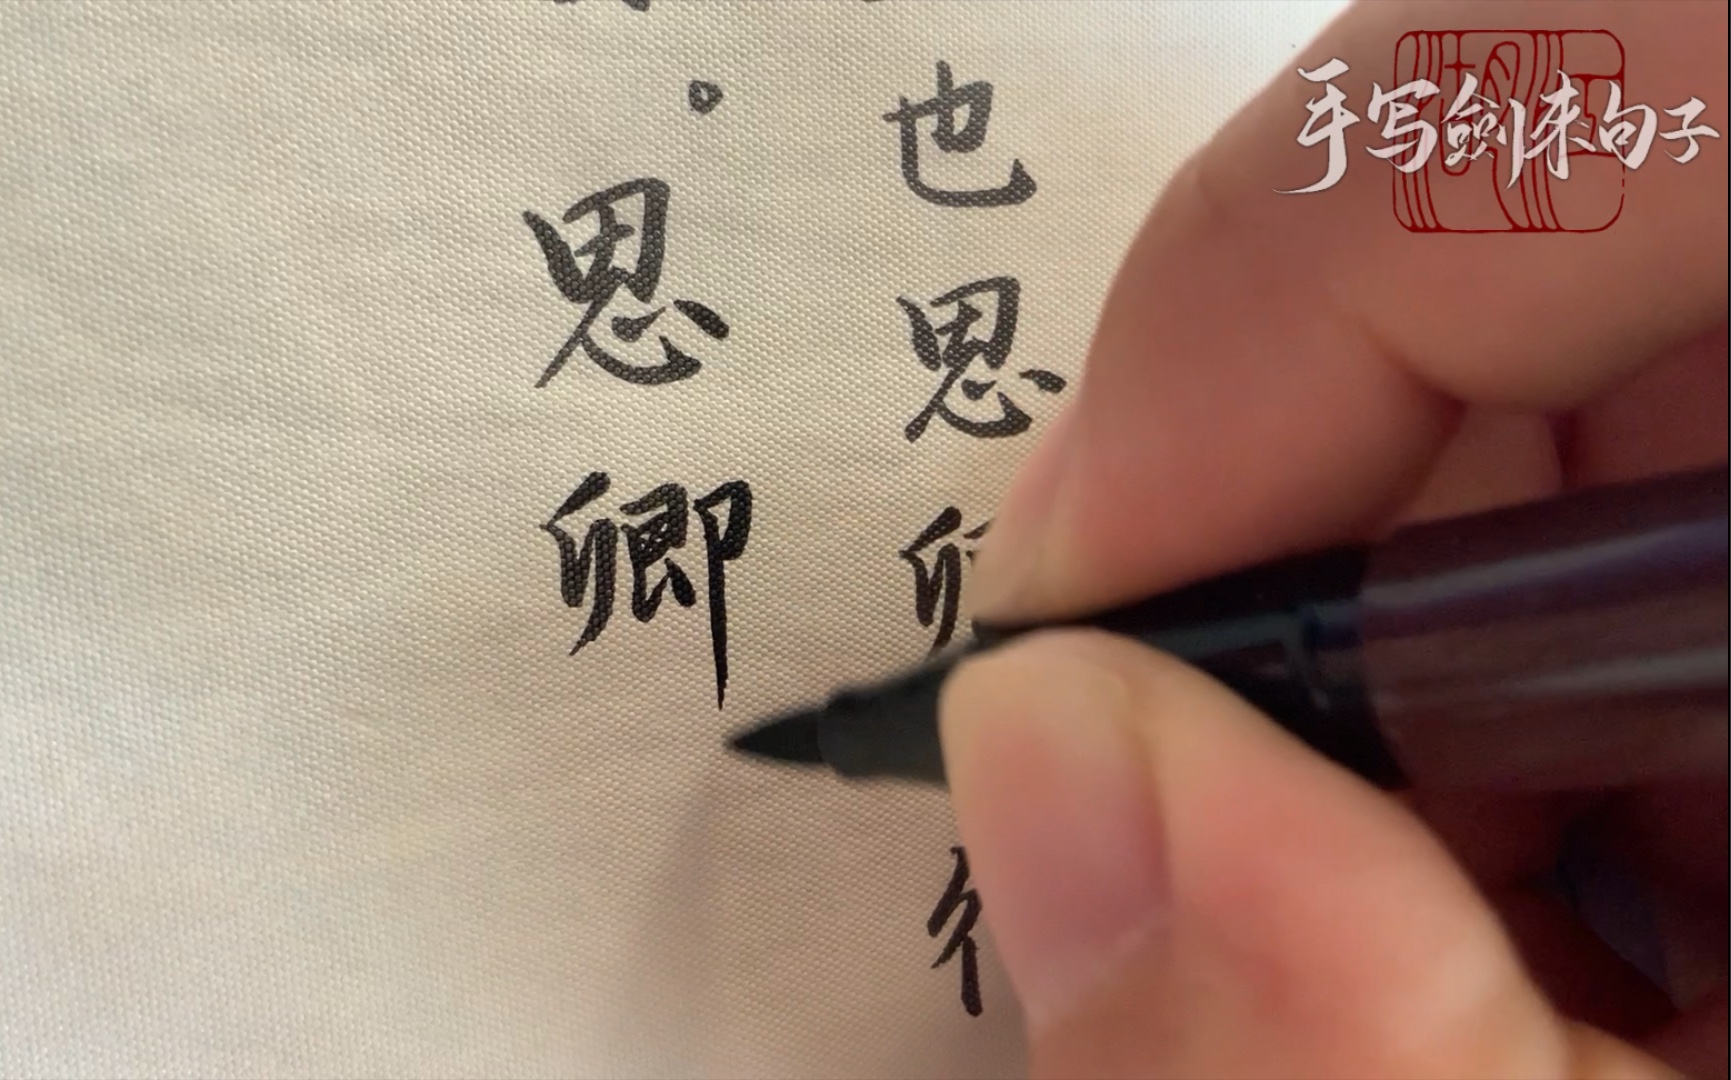 手写剑来句子
也思
。思卿